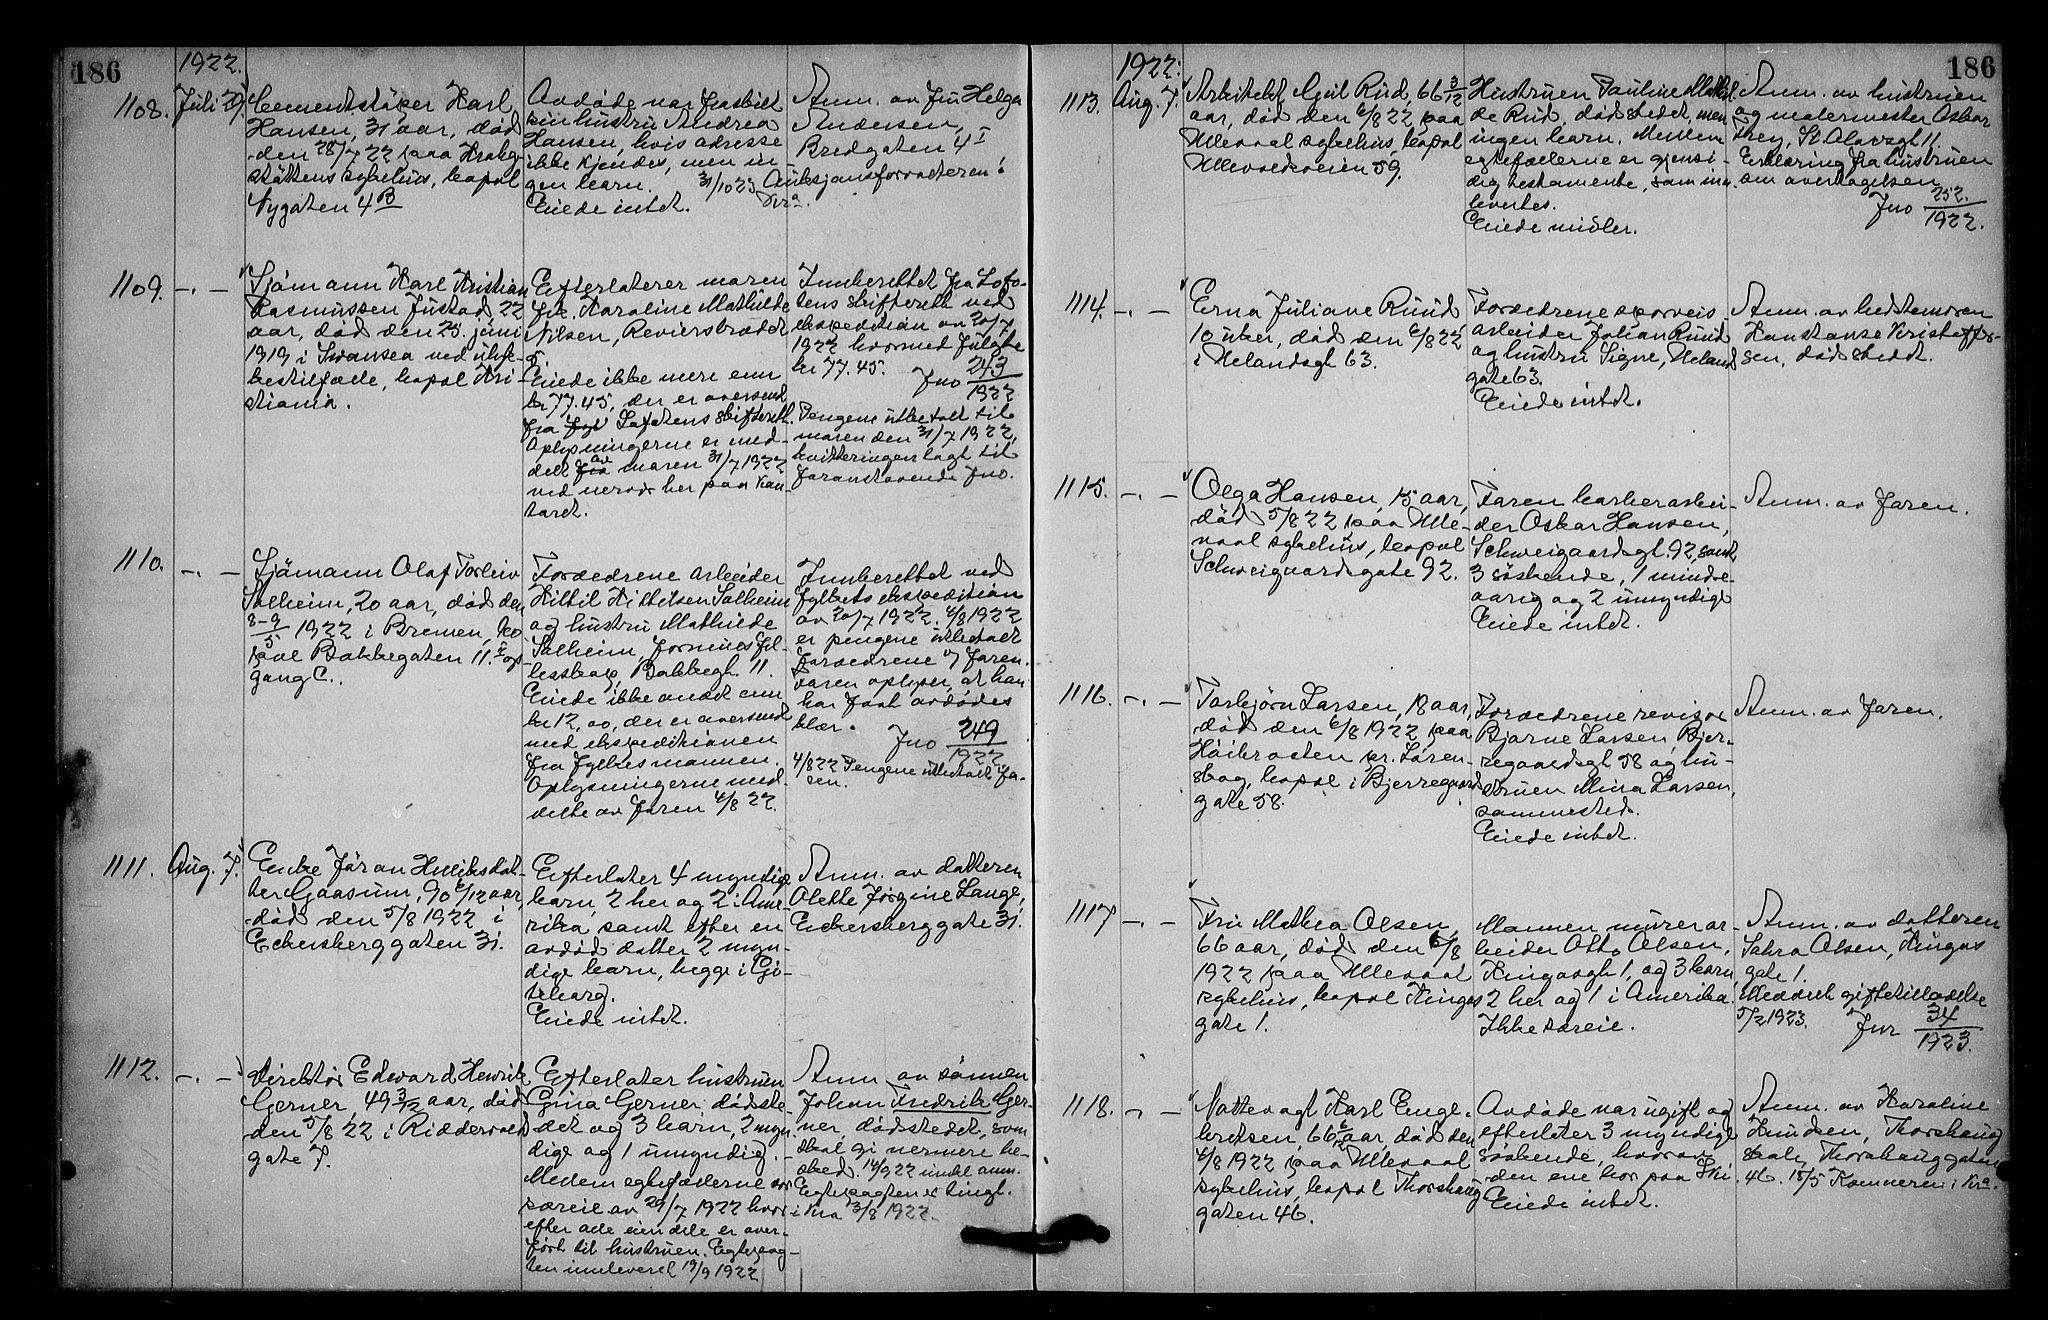 186
1922.
1108. Juli 29. Cementstøper Karl
Hansen, 31 aar, død
den 28/7 22 paa Krohg-
støttens sykehus, bopæl
Nygaten 4 B
Avdøde var fraskilt
sin hustru Andrea
Hansen, hvis adresse
ikke kjendes, men in
gen barn.
Eiede intet.
Anm. av Fru Helga
Andersen,
Bredgaten 4 I
31/10 23 Auksjonsforvalteren i
Kra.
1109. -.- Sjømann Karl Kristian
Rasmussen Justad, 22
aar, død den 25. juni
1919 i Swansea ved ulyk-
kestilfælde, bopæl Kri-
stiania.
Efterlater moren
frk. Karoline Mathilde
Nilsen, Revierstrædet
5.
Eiede ikke mere enn
kr 77.45, der er oversendt
fra Lofotens skifterett.
Oplysningerne er med-
delt av moren 31/7 1922
ved nærvær her paa kon-
toret.
Innberettet fra Lofo-
tens skifterett ved
ekspedition av 20/7
1922 hvormed fulgte
kr 77.45. Jno 243
1922
Pengene utbetalt til
moren den 31/7 1922,
kvitteringen lagt til
foranstaaende Jno.
1110. -.- Sjømann Olaf Torleiv
Solheim, 20 aar, død den
8-9
5 1922 i Bremen, bo
pæl Bakkegaten 11. opp
gang C.
Forældrene arbeider
Kittil Kittilsen Solheim
og hustru Mathilde
Solheim, formuesfæl-
lesskap, Bakkegt. 11.
Eiede ikke andet enn
kr 12,00, der er oversendt
med ekspeditionen
fra fylkesmannen.
Oplysningerne med
delte av faren 4/8 22.
Innberettet ved
fylkets ekspedition
av 20/7 1922. 4/8 1922
er pengene utbetalt
forældrene v/ faren.
Faren oplyser, at han
har faat avdødes
klær.
Jno 249
1922
4/8 22 Pengene utbetalt fa-
ren.
1111. Aug. 7. Enke Jøran Hulliksdat-
ter Gaasum, 90 6/12 aar,
død den 5/8 1922 i
Eckersberggaten 31.
Efterlater 4 myndige
barn, 2 her og 2 i Ame-
rika, samt efter en
avdød datter 2 myn-
dige barn, begge i Gø-
teborg.
Eiede intet.
Anm. av datteren
Olette Jørgine Lange,
Eckersberggate 31.
1112. -.- Direktør Edward Henrik
Gerner, 49 3/12 aar, død
den 5/8 22 i Riddervolds
gate 7.
Efterlater hustruen
Gina Gerner, dødste-
det og 3 barn, 2 myn
dige og 1 umyndig.
Mellem egtefællerne var
særeie av 29/7 1922 hvor
efter alle eiendele er over-
ført til hustruen. Egtepag-
ten innlevert 19/9 1922
Anm. av sønnen
Johan Fredrik Ger-
ner, dødstedet, som
skal gi nærmere be-
sked. 14/9 22 innk. anm.
Egtepagten er tingl.
i Kra 3/8 1922.
186
1922.
1113. Aug. 7. Arkitekt Emil Rud, 66 3/12
aar, død den 6/8 22 paa
Ullevaal sykehus, bopæl
Ullevoldsveien 59.
Hustruen Pauline Mathil
de Rud, dødstedet, men
ingen barn. Mellem
egtefællerne er gjensi-
dig testamente, som inn
levertes.
Eiede midler.
Anm. av hustruen
og malermester Oskar
Frey, St Olavsgt 11.
Erklæring fra hustruen
om overtagelsen
Jno 252.
1922.
1114. -.- Erna Juliane Ruud
10 uker, død den 6/8 22
i Nelandsgt 63.
Forældrene sporveis
arbeider Johan Ruud
og hustru Signe, Neland
gate 63.
Eiede intet.
Anm. av bedstemoren
Konstanse Kristoffer-
sen, dødstedet.
1115. -.- Olga Hansen, 15 aar,
død 5/8 22 paa Ulle-
vaal sykehus, bopæl
Schweigaardsgate 92.
Faren korkearbei-
der Oskar Hansen,
Schweigaardsgt. 92, samt
3 søskende, 1 mindre-
aarig og 2 umyndige
Eiede intet.
Anm. av faren.
1116. -.- Torbjørn Larsen, 18 aar,
død den 6/8 1922 paa
Høibraaten pr. Søren-
skog, bopæl i Bjerregaards
gate 58.
Forældrene revisor
Bjarne Larsen, Bjer-
regaardsgt 58 og hu-
struen Mina Larsen,
sammesteds.
Eiede intet.
Anm. av faren.
1117. -.- Fru Mathea Olsen,
66 aar, død den 6/8
1922 paa Ullevaal
sykehus, bopæl Kingos
gate 1.
Mannen murerar-
beider Otto Olsen,
Kingosgt 1, og 3 barn
2 her og 1 i Amerika.
Ikke særeie.
Anm. av datteren
Salva Olsen, Kingos
gate 1.
Meddelt giftetilladelse
5/2 1923. Jnr 34
1923.
1118. -.- Nattevagt Karl Enge-
bretsen, 66 6/12 aar, død den
4/8 1922 paa Ullevaal
sykehus, bopæl Thorshaug
gaten 46.
Avdøde var ugift og
efterlater 3 myndige
søskende, hvorav
den ene bor paa Ski.
Eiede intet.
Anm. av Karoline
Knudsen, Thorshaug
skole, Thorshauggaten
46. 15/5 Kæmneren i Kra.